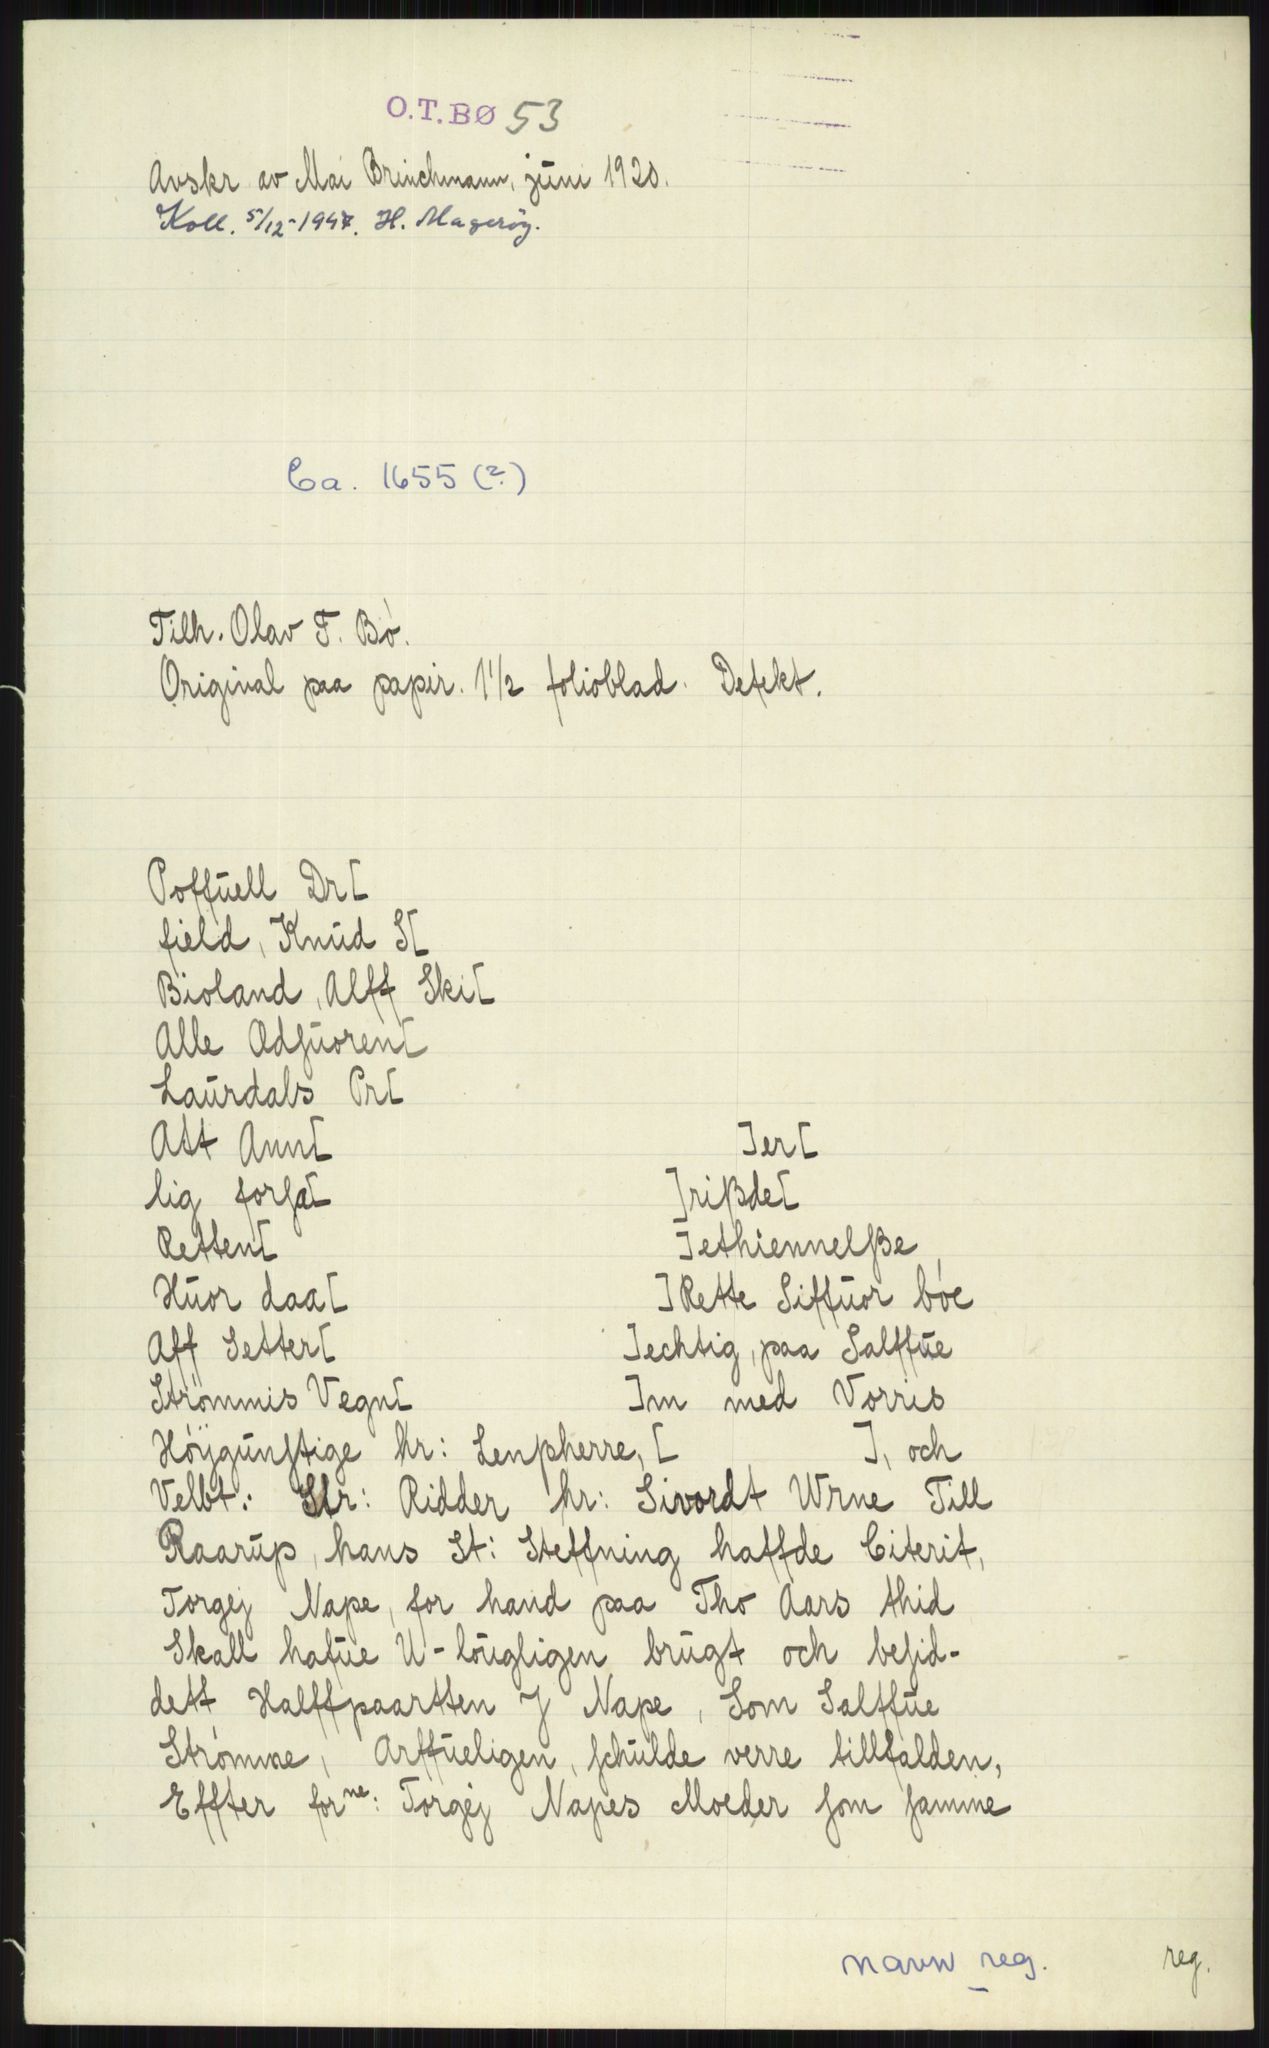 O.T.BØ 53
Avskr av Mai Brinchmann, juni 1920.
Koll. 5/12-1947. H. Magerøy.
Ca. 1655 (?)
Tilh. Olav F. Bø.
Original paa papir. 1 1/2 folioblad. Defekt.
Poffuell Dr[
field, Knud S[
Bioland, Alff Ski[
Alle Adsuoren[
Laurdals Pr[
Att Ann[ ]er[
lig forsa[ ]rißde[
Retten[ ]ethiennelße
Huor daa[ ]Rette Siffuor bøe
Aff Setter[ ]echtig, paa Salffue
Strømmis Vegn[ ]m med Vorris
Høÿgunstige hr: Lenpherre,[ ], och
Velbt: Str: Ridder hr: Sivordt Wrne Till
Raarup, hans St: Steffning haffde Citerit,
Torgej Nape, for hand paa Tho Aars thid
Skall hafue U-lougligen brugt och besid-
dett Halffpaartten J Nape, Som Salffue
Strømme, Arffueligen, schulde verre tillfalden,
Effter forne: Torgej Napes Moeder som samme
navn reg.
reg.